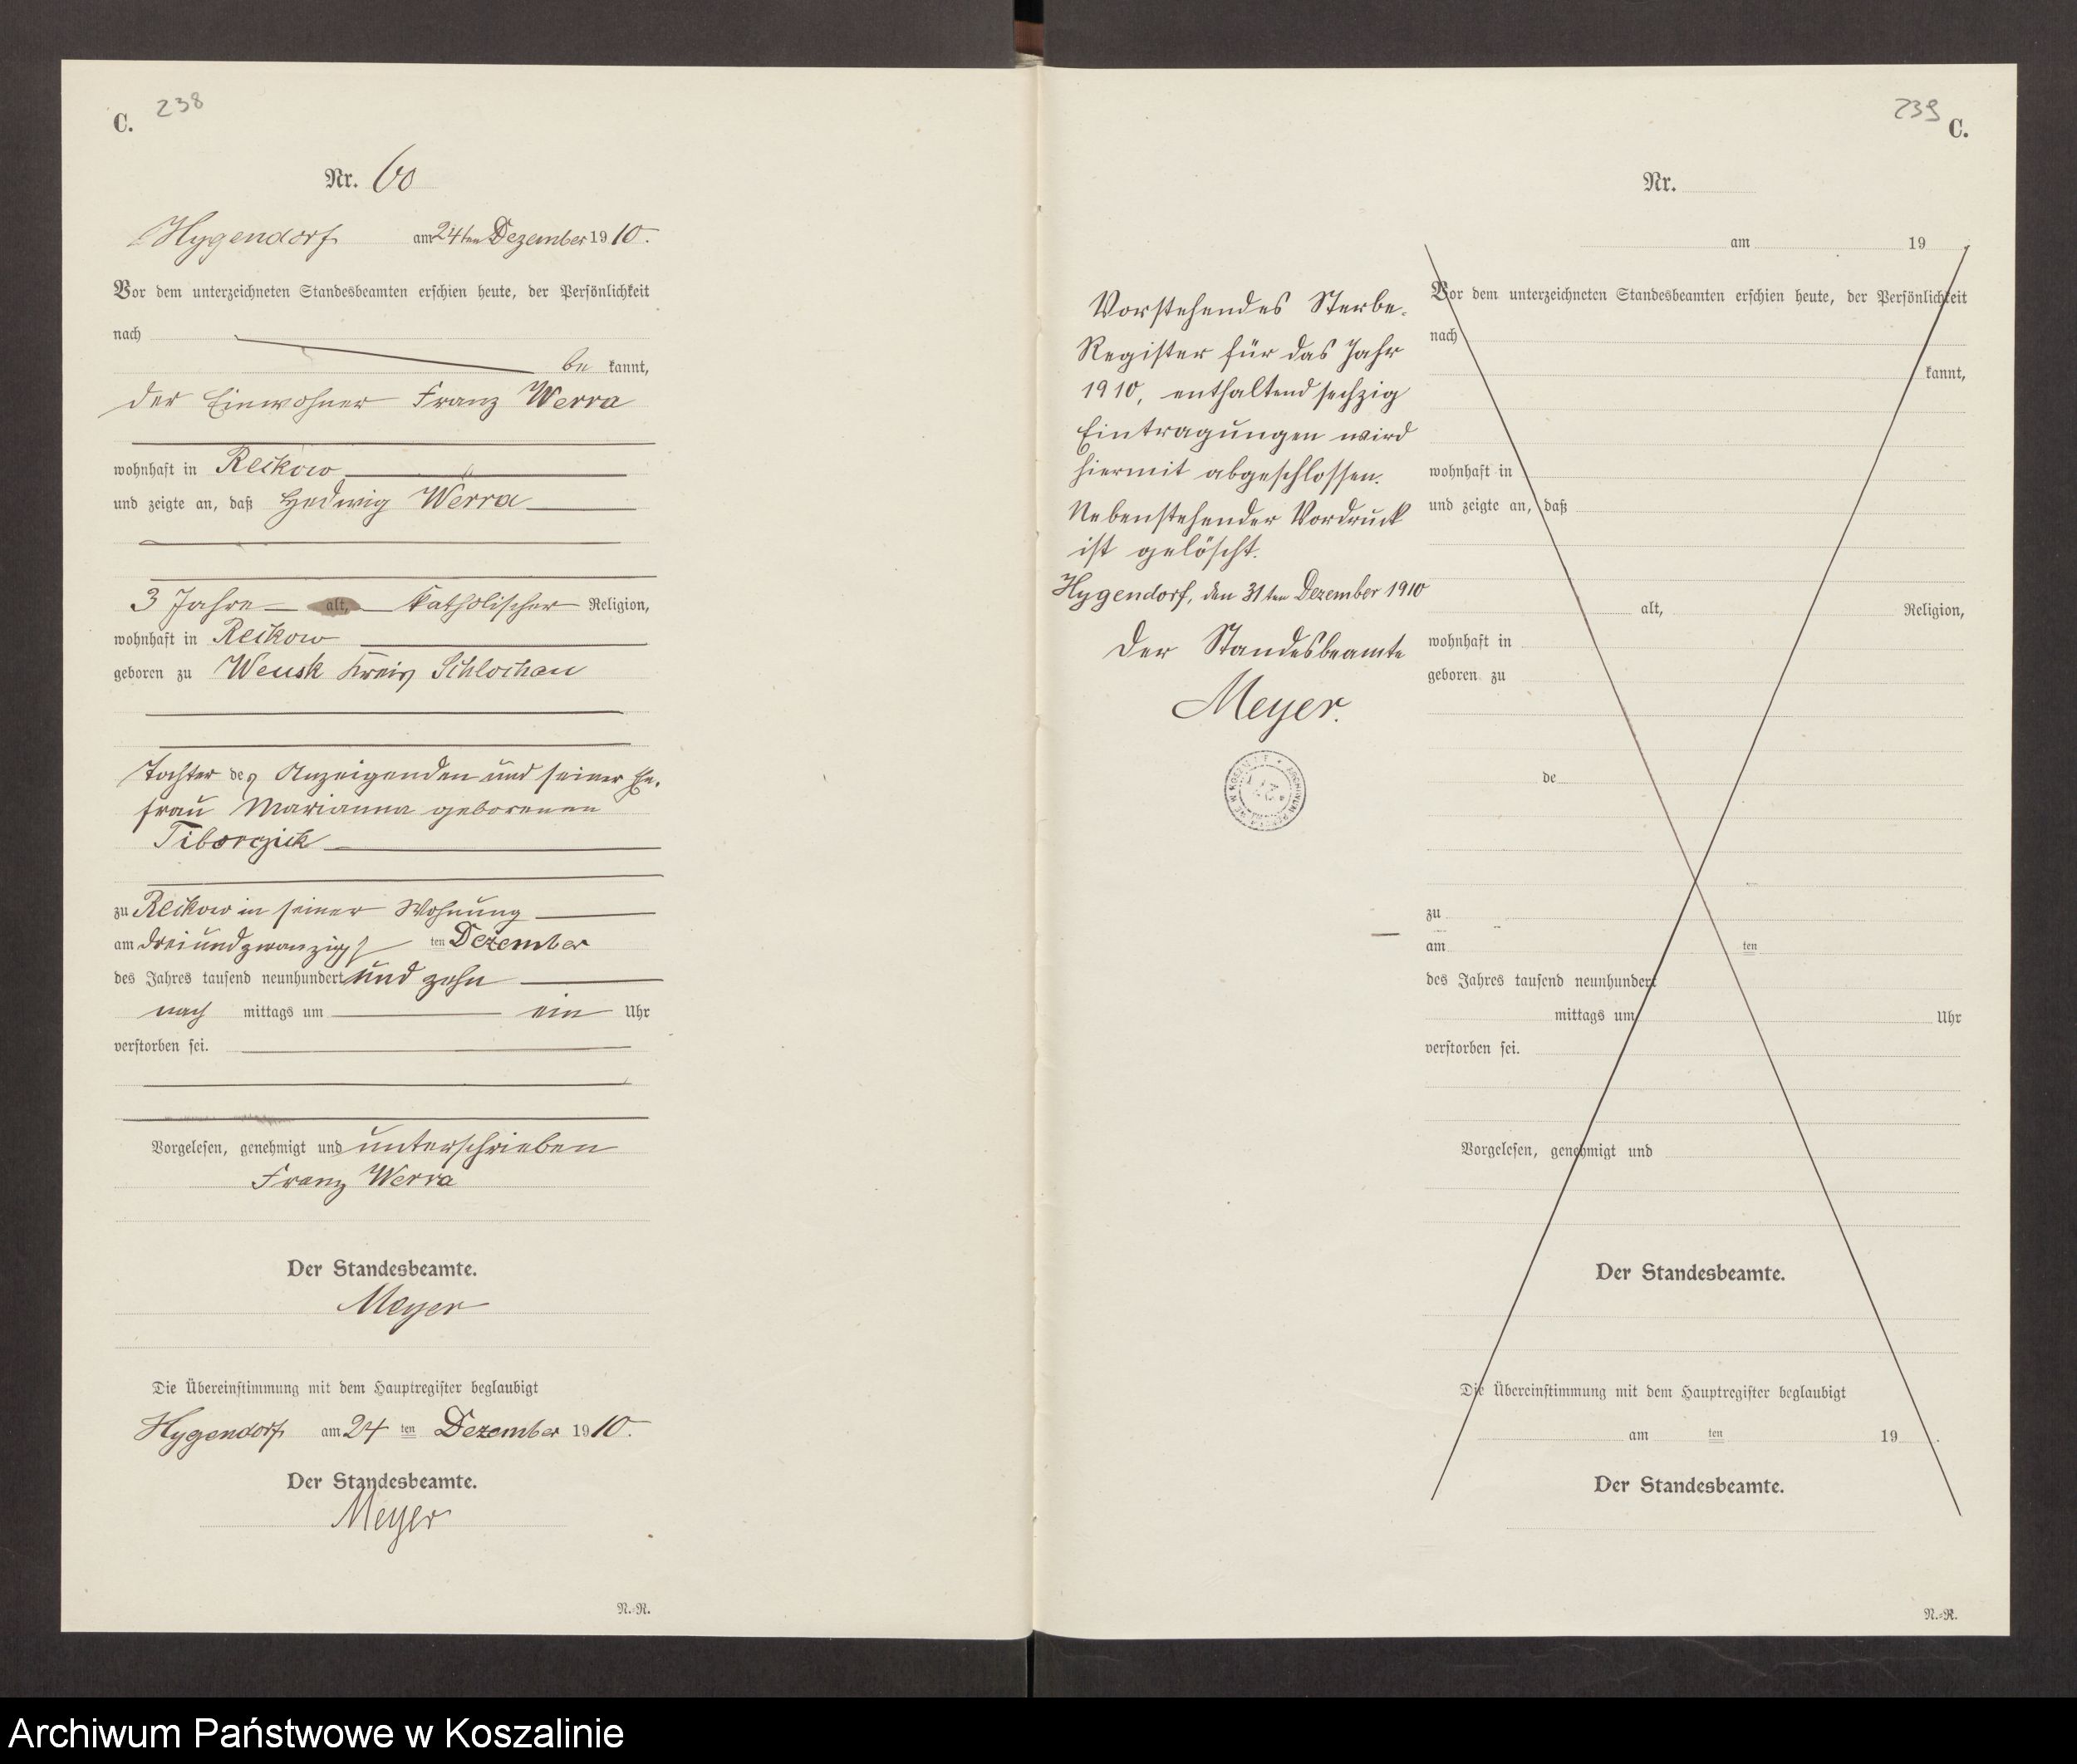 238
C.
Nr. 60
Hygendorf am 24ten Dezember 1910.
Vor dem unterzeichneten Standesbeamten erschien heute, der Persönlichkeit
nach
be kannt,
der Einwohner Franz Werra
wohnhaft in Reikow
und zeigte an, daß Hedwig Werra
3 Jahre alt, katholischer Religion,
wohnhaft in Reikow
geboren zu Wensk Kreis Schlochau
Tochter des Anzeigenden und seiner Ehe-
frau Marianna geborenen
Tiborczick
zu Reikow in seiner Wohnung
am dreiundzwanzigsten Dezember
des Jahres tausend neunhundert und zehn
nach mittags um ein Uhr
verstorben sei.
Vorgelesen, genehmigt und unterschrieben
Franz Werra
Der Standesbeamte.
Meyer
Die Übereinstimmung mit dem Hauptregister beglaubigt
Hygendorf am 24 ten Dezember 1910.
Der Standesbeamte.
Meyer
N.-R.
239
C.
Nr.
am 19
Vorstehendes Sterbe-
Register für das Jahr
1910, enthaltend sechzig
Eintragungen wird
hiermit abgeschlossen.
Nebenstehender Vordruck
ist gelöscht.
Hygendorf, den 31ten Dezember 1910
Der Standesbeamte
Meyer.
Vor dem unterzeichneten Standesbeamten erschien heute, der Persönlichkeit
nach
kannt,
wohnhaft in
und zeigte an, daß
alt, Religion,
wohnhaft in
geboren zu
de
zu
am ten
des Jahres tausend neunhundert
mittags um Uhr
verstorben sei.
Vorgelesen, genehmigt und
Der Standesbeamte.
Die Übereinstimmung mit dem Hauptregister beglaubigt
am ten 19
Der Standesbeamte.
N.-R.
Archiwum Państwowe w Koszalinie